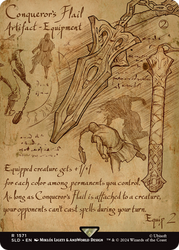 Conqueror's Flail
2
Artifact - Equipment
Equipped creature gets +1/+1
for each color among permanents you control.
As long as Conqueror's Flail is attached to a creature,
your opponents can't cast spells during your turn.
Equip 2
R 1571
SLD • EN Miklós Ligeti & AnnWorld Design
© Ubisoft
™ & © 2024 Wizards of the Coast